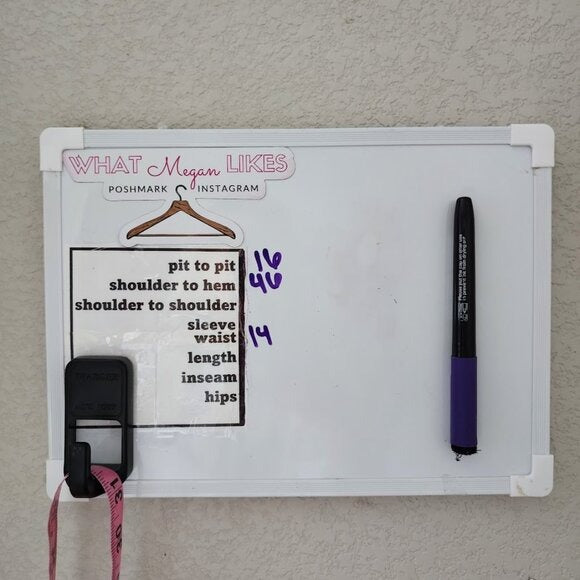 WHAT Megan LIKES
POSHMARK INSTAGRAM
pit to pit 16
shoulder to hem 46
shoulder to shoulder
sleeve
waist 14
length
inseam
hips
31